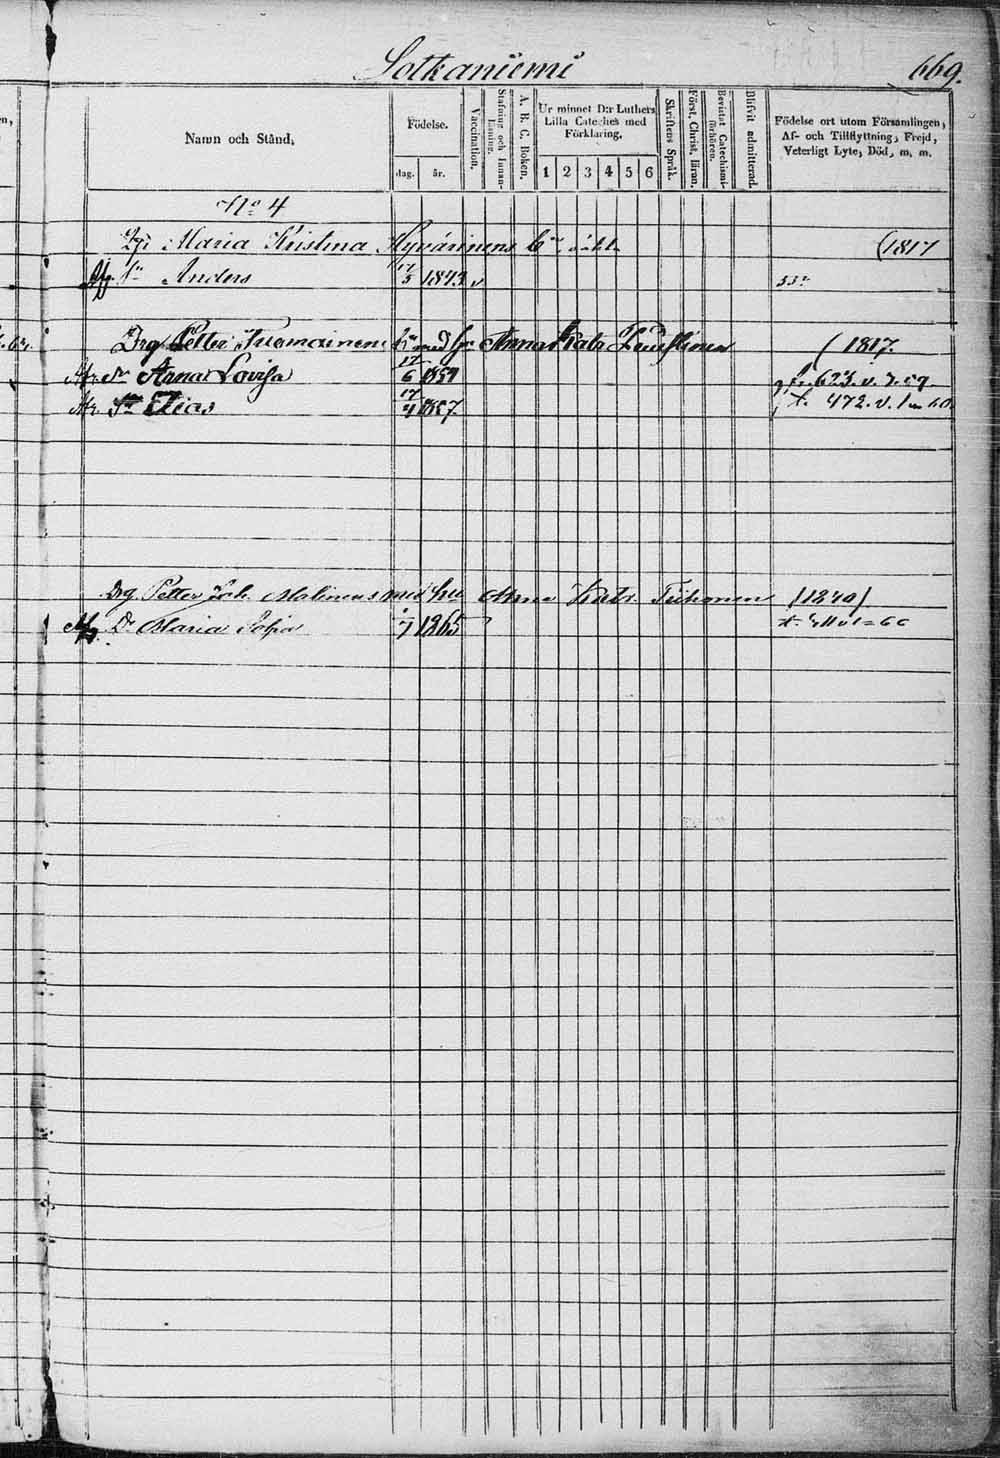 Sotkaniemi 669.
Namn och Stånd,
Födelse.
dag. år.
Vaccination.
Stafning och Innan-Läsning.
A. B. C. Boken.
Ur minnet D:r Luthers Lilla Cateches med Förklaring.
1 2 3 4 5 6
Skriftens Språk.
Först. Christ. läran.
Bevistat Catechismi-förhören.
Blifvit admitterad.
Födelse ort utom Församlingen, Af- och Tillflyttning, Frejd, Veterligt Lyte, Död, m. m.
No 4
Maria Kristina Hyvärinens (1817
Anders 1843 v
Drg Petter Tuomainens Anna Kat: (1817.
Anna Lovisa 17/6 1854
Elias 17/4 1857.
Drg. Petter Joh. Malinens med hu Anna Katr. Tiihonen (1840)
Dr Maria Sofia 1865